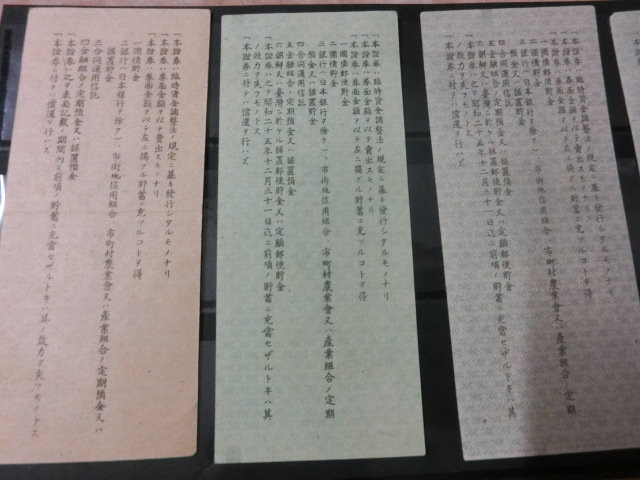 一、本證券ハ臨時資金調整法ノ規定ニ基キ發行シタルモノナリ
一、本證券ハ券面金額ヲ以テ賣出スモノナリ
一、本證券ハ券面金額ヲ以テ左ニ掲グル貯蓄ニ充ツルコトヲ得
一國債貯金
二銀行(日本銀行ヲ除ク)、市街地信用組合、市町村農業會又ハ産業組合ノ定期預金又ハ
据置貯金
三合同運用信託
四金融組合ノ定期預金又ハ据置預金
一、本證券ハ之ヲ券面記載ノ期間内ニ前項ノ貯蓄ニ充當セザルトキハ其ノ效力ヲ失フモノトス
一、本證券ニ付テハ償還ヲ行ハズ
一、本證券ハ臨時資金調整法ノ規定ニ基キ發行シタルモノナリ
一、本證券ハ券面金額ヲ以テ賣出スモノナリ
一、本證券ハ券面金額ヲ以テ左ニ掲グル貯蓄ニ充ツルコトヲ得
一國債郵便貯金
二國債貯金
三銀行(日本銀行ヲ除ク)、市街地信用組合、市町村農業會又ハ産業組合ノ定期
預金又ハ据置貯金
四合同運用信託
五金融組合ノ定期預金又ハ据置預金
六朝鮮又ハ臺灣ニ於ケル据置郵便貯金又ハ定額郵便貯金
一、本證券ハ之ヲ昭和二十五年十二月三十一日迄ニ前項ノ貯蓄ニ充當セザルトキハ其
ノ效力ヲ失フモノトス
一、本證券ニ付テハ償還ヲ行ハズ
一、本證券ハ臨時資金調整法ノ規定ニ基キ發行シタルモノナリ
一、本證券ハ券面金額ヲ以テ賣出スモノナリ
一、本證券ハ券面金額ヲ以テ左ニ掲グル貯蓄ニ充ツルコトヲ得
一國債郵便貯金
二國債貯金
三銀行(日本銀行ヲ除ク)、市街地信用組合、市町村農業會又ハ産業組合ノ定期
預金又ハ据置貯金
四合同運用信託
五金融組合ノ定期預金又ハ据置預金
六朝鮮又ハ臺灣ニ於ケル据置郵便貯金又ハ定額郵便貯金
一、本證券ハ之ヲ昭和二十五年十二月三十一日迄ニ前項ノ貯蓄ニ充當セザルトキハ其
ノ效力ヲ失フモノトス
一、本證券ニ付テハ償還ヲ行ハズ